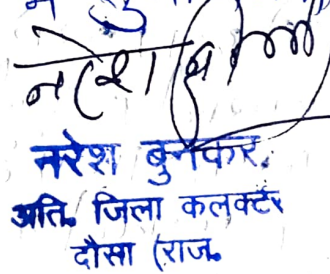 नरेश बुनकर
अति. जिला कलक्टर
दौसा (राज.